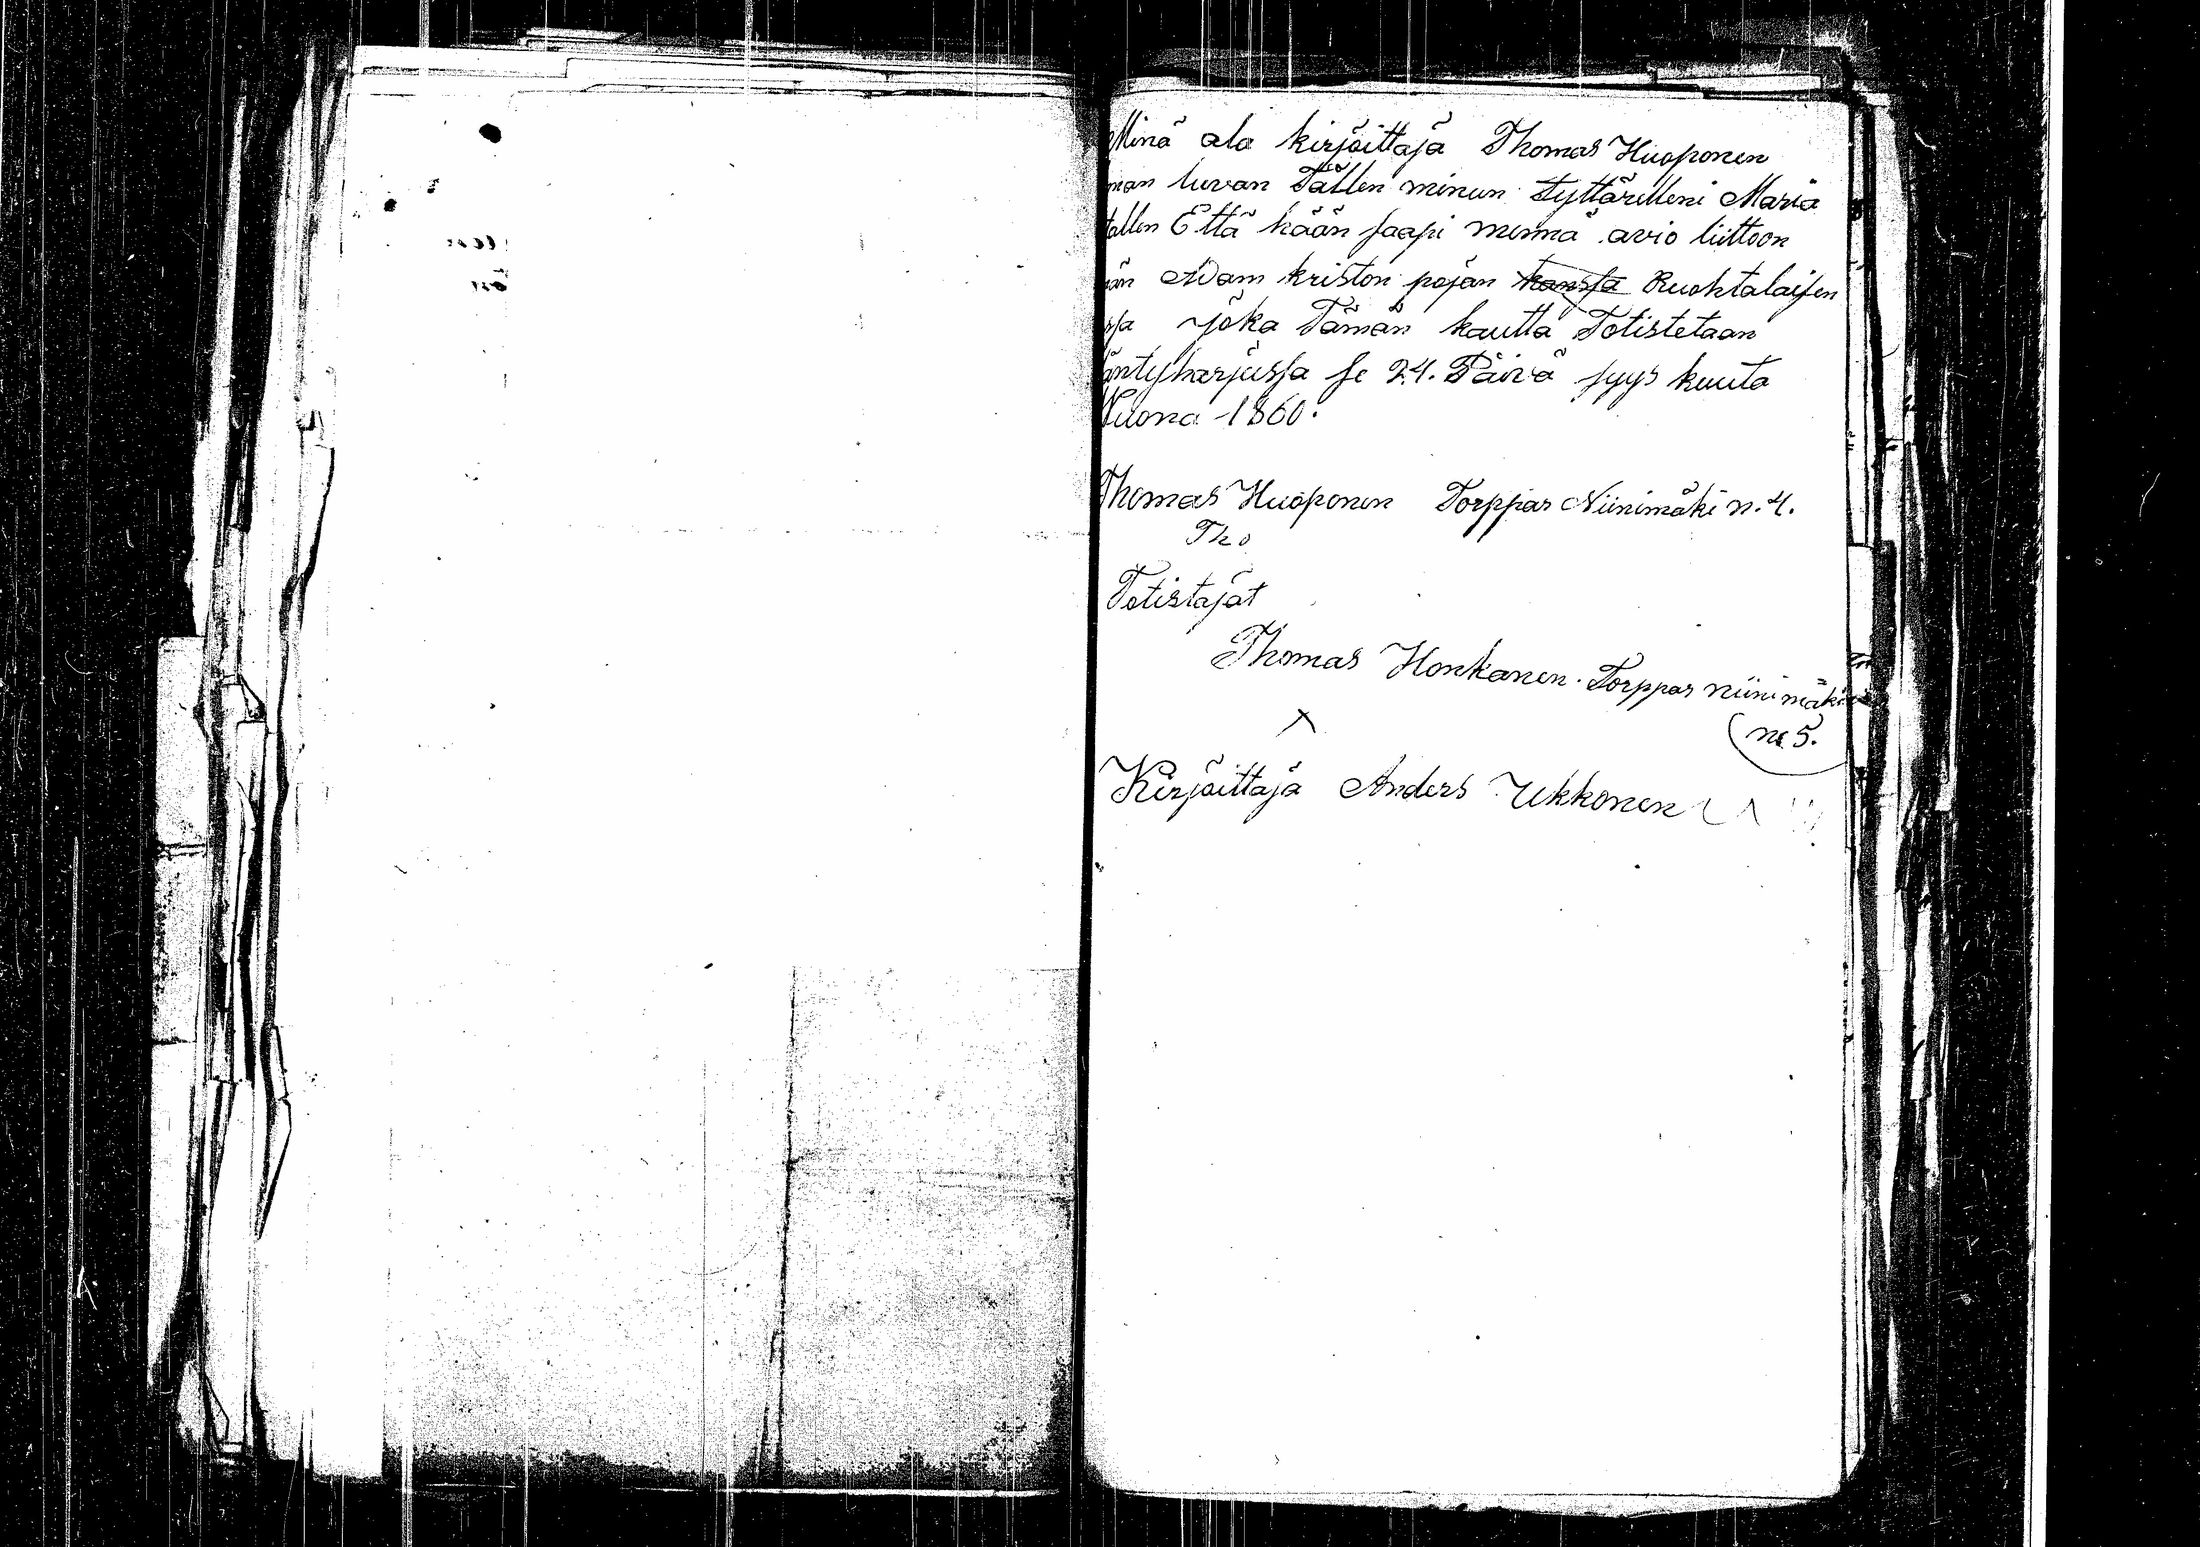 Minä ala kirjoittaja Thomas Huoponen
nan luvan Tällen minun Tyttärelleni Maria
tallen Että hään saapi mennä avio liittoon
än Adam kriston pojan kanssa Ruohtalaisen
ssa joka Tämän kautta Totistetaan
äntyharjussa se 24. Päivä syys kuuta
Vuona 1860.
Thomas Huoponen Torppar Niinimäki n. 4.
Tho
Totistajat
Thomas Honkanen. Torppar niinimäki
no 5.
Kirjoittaja Anders Ukkonen